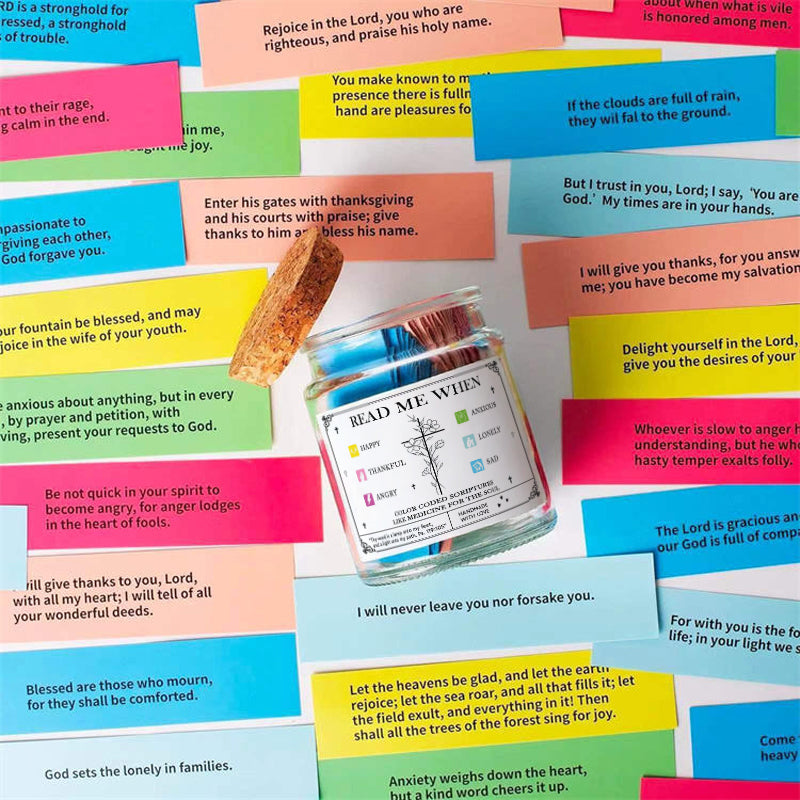 RD is a stronghold for
ressed, a stronghold
s of trouble.
Rejoice in the Lord, you who are
righteous, and praise his holy name.
about when what is vile
is honored among men.
nt to their rage,
g calm in the end.
in me,
me joy.
You make known to m
presence there is fulln
hand are pleasures fo
If the clouds are full of rain,
they wil fal to the ground.
npassionate to
rgiving each other,
God forgave you.
Enter his gates with thanksgiving
and his courts with praise; give
thanks to him a bless his name.
But I trust in you, Lord; I say, 'You are
God.' My times are in your hands.
I will give you thanks, for you answ
me; you have become my salvation
our fountain be blessed, and may
joice in the wife of your youth.
Delight yourself in the Lord,
give you the desires of your
e anxious about anything, but in every
, by prayer and petition, with
ving, present your requests to God.
READ ME WHEN
HAPPY
THANKFUL
ANGRY
ANXIOUS
LONELY
SAD
COLOR CODED SCRIPTURES
LIKE MEDICINE FOR THE SOUL
HANDMADE
WITH LOVE
Whoever is slow to anger h
understanding, but he who
hasty temper exalts folly.
Be not quick in your spirit to
become angry, for anger lodges
in the heart of fools.
The Lord is gracious an
our God is full of compa
will give thanks to you, Lord,
with all my heart; I will tell of all
your wonderful deeds.
I will never leave you nor forsake you.
For with you is the fo
life; in your light we s
Blessed are those who mourn,
for they shall be comforted.
Let the heavens be glad, and let the earth
rejoice; let the sea roar, and all that fills it; let
the field exult, and everything in it! Then
shall all the trees of the forest sing for joy.
Come
heavy
God sets the lonely in families.
Anxiety weighs down the heart,
but a kind word cheers it up.